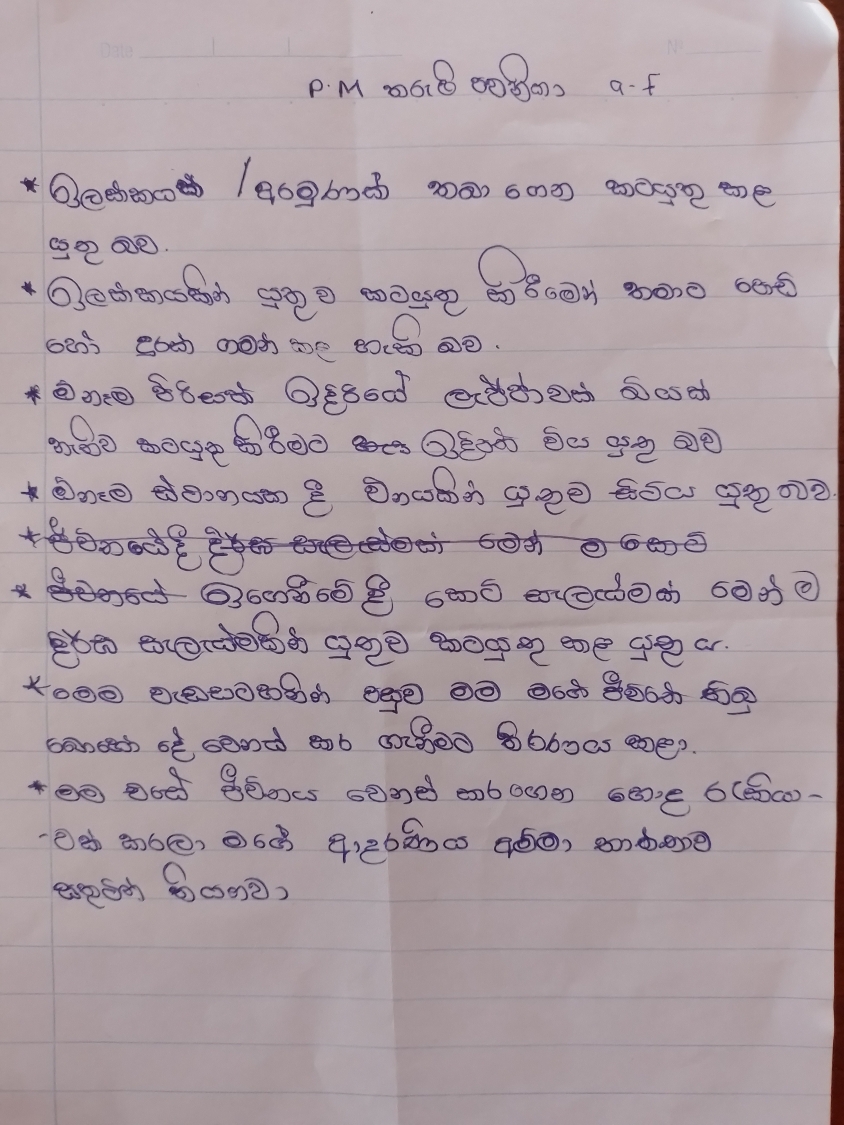 P.M තරුෂි පවනිකා 9-F
* ඉලක්කයක් / අරමුණක් තබා ගෙන කටයුතු කළ
යුතු බව.
* ඉලක්කයකින් යුතුව කටයුතු කිරීමෙන් තමාට පොඩි
හෝ දුරක් ගමන් කල හැකි බව.
* ඕනෑම පිරිසක් ඉදිරියේ ලැජ්ජාවක් බියක්
නැතිව කටයුතු කිරීමට ඉදිරිපත් විය යුතු බව
* ඕනෑම ස්ථානයක දී විනයකින් යුතුව සිටිය යුතු බව.
* ජීවිතයේදී දීර්ඝ සැලැස්මක් මෙන් ම කෙටි
* ජීවිතයේ ඉගෙනීමේ දී කෙටි සැලැස්මක් මෙන් ම
දීර්ඝ සැලැස්මකින් යුතුව කටයුතු කළ යුතු ය.
* මෙම වැඩසටහනින් පසුව මම මගේ ජීවිතේ තිබු
බොහෝ දේ වෙනස් කර ගැනීමට තීරණය කළා.
* මම මගේ ජීවිතය වෙනස් කරගෙන හොද රැකියා-
-වක් කරලා මගේ ආදරණීය අම්මා තාත්තාව
සතුටින් තියනවා